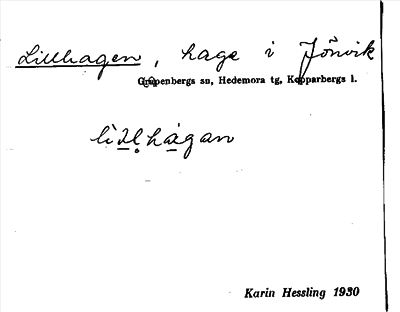 Lillhagen, hage i Jönvik
Grupenbergs sn, Hedemora tg, Kopparbergs l.
lìlhàgan
Karin Hessling 1930